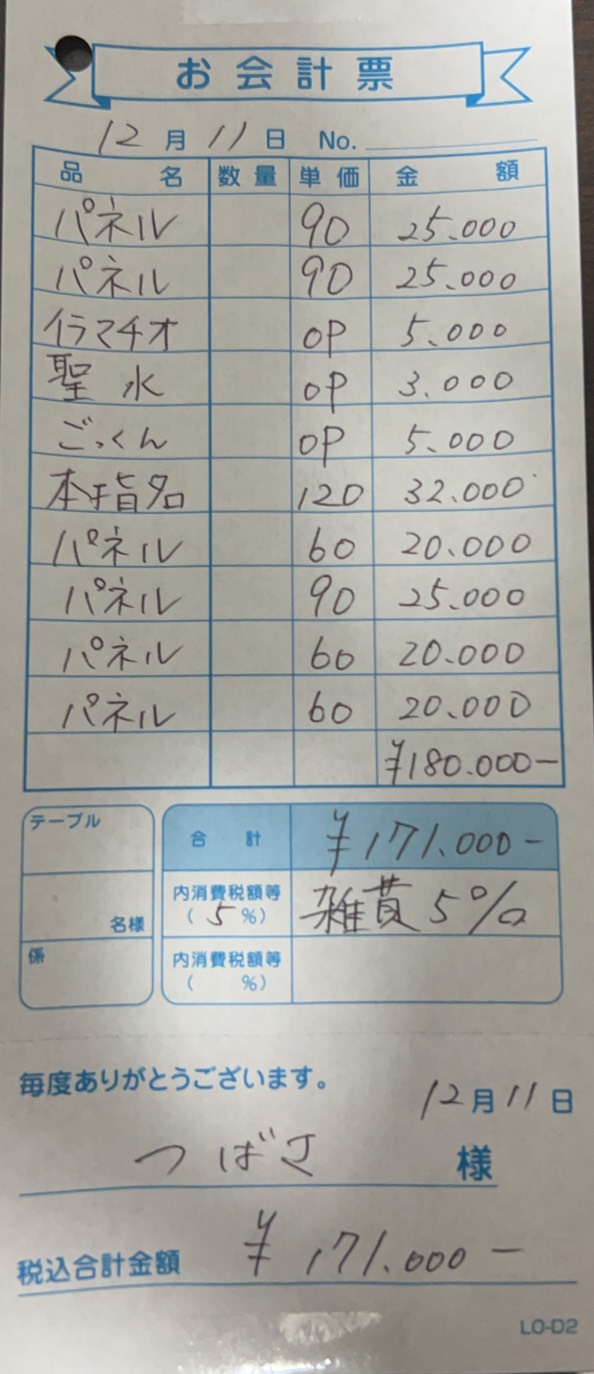 お会計票
12月11日 No.
品名 数量 単価 金額
パネル 90 25.000
パネル 90 25.000
イラマチオ OP 5.000
聖水 OP 3.000
ごっくん OP 5.000
本指名 120 32.000
パネル 60 20.000
パネル 90 25.000
パネル 60 20.000
パネル 60 20.000
¥180.000-
テーブル
名様
係
合計 ¥171.000-
内消費税額等
(5%) 雑費5%
内消費税額等
( %)
毎度ありがとうございます。
12月11日
つばさ 様
税込合計金額 ¥171.000-
LO-D2